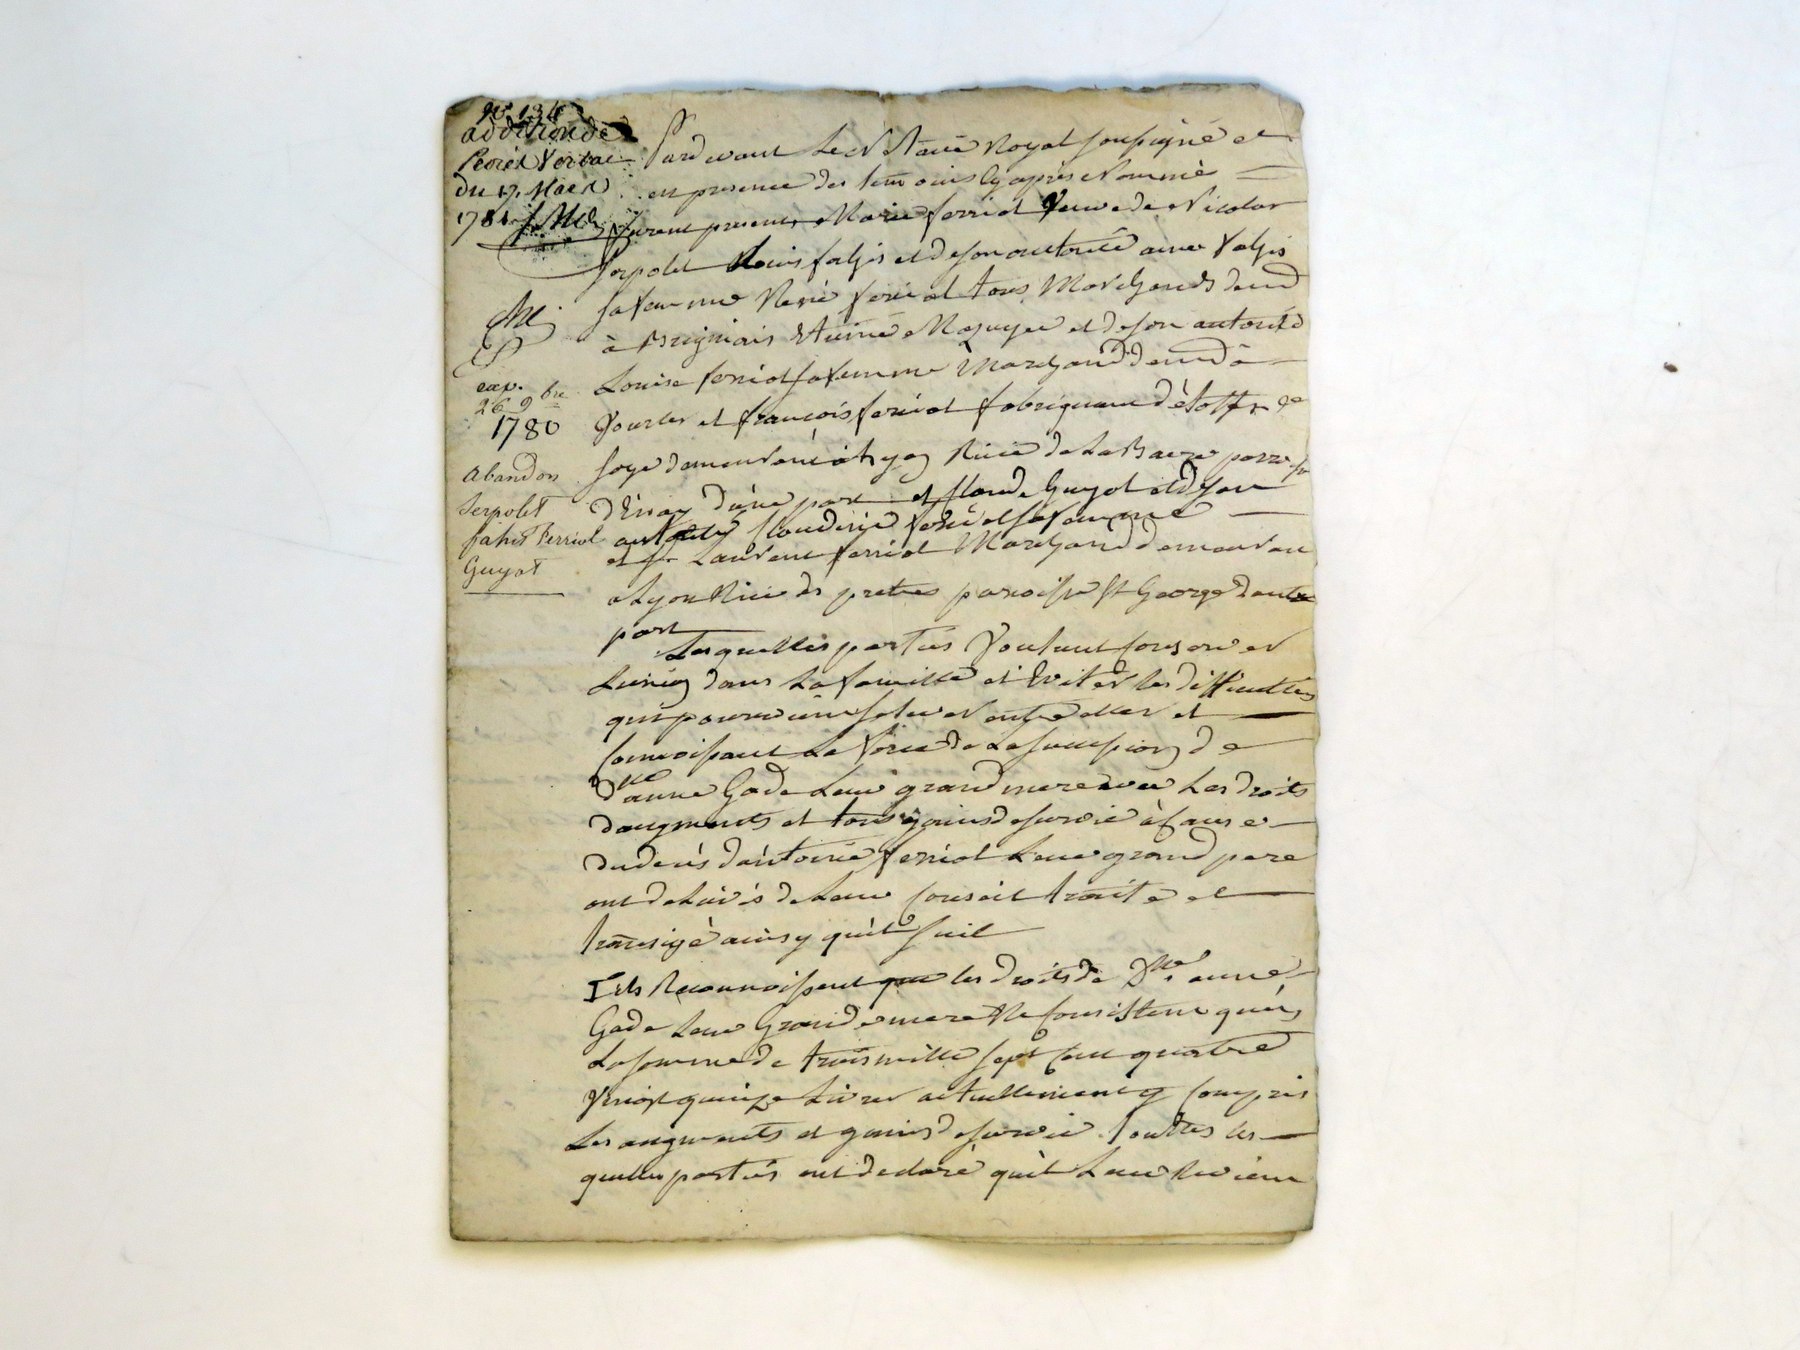 N° 134
addition de
Procès Verbal
du 17. Mars
1781
exp.
26 9bre
1780
Abandon
Serpolet
fahis ferriol
Guyot
Pardevant Le Notaire Royal soussigné et
en presence des temoins cy après Nommé
furent presents Marie ferriol Veuve de Nicolas
Serpolet Louis et de son autorité anne
sa femme René ferriol tous Marchands demt
à Brignais et de son autorité
Louise ferriol sa femme Marchand demt à
Vourles et françois ferriol fabriquant d'étoffe de
soye demeurant à Lyon Rüe de La paroisse
d'Enay d'une part et Claude Guyot et de son
autorité Claudine ferriol sa femme
et Sr Laurent ferriol Marchand demeurant
a Lyon Rüe des pretres paroisse St George d'autre
part
Lesquelles parties Voulant Conserver
L'union dans La famille et Eviter les difficultés
qui pourroient s'elever entre elles et
Connoissant La force de La succession de
Dlle anne Gade Leur grand mere avec Les droits
d'augments et tous gains de survie à Cause
du deces d'antoine ferriol Leur grand pere
ont de Lavis de Leur Conseil traité et
transigé ainsy quil suit
Ils Reconnoissent que les droits de Dlle anne
Gade Leur Grande mere Ne Consistent qu'en
La somme de trois mille sept Cent quatre
Vingt quinze Livres actuellement y Compris
Les augments et gains de survie toutes les
quelles parties ont declaré quil Leur Revient